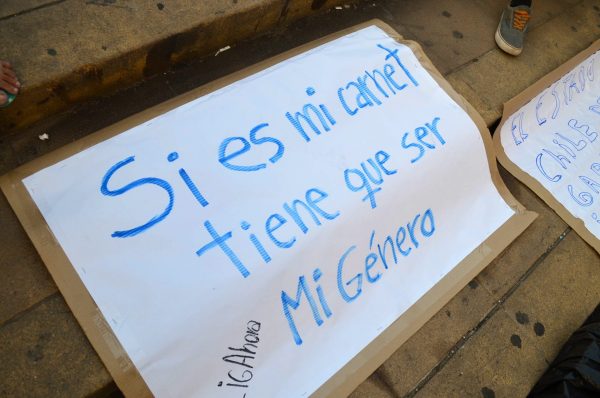 Si es mi carnet
tiene que ser
Mi Género
-iGAhora
EL ESTADO
CHILE